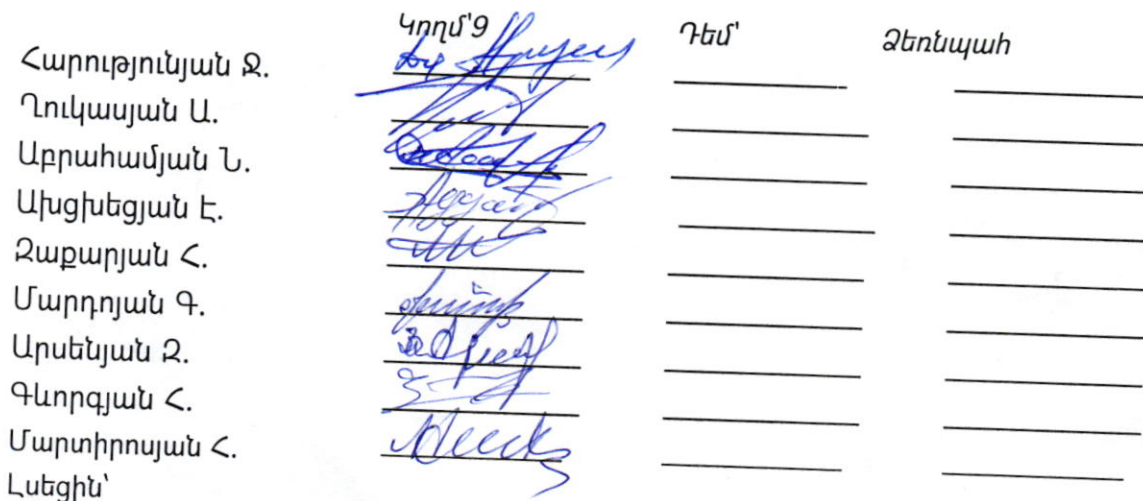 Կողմ՝9 Դեմ՝ Ձեռնպահ
Հարությունյան Ջ.
Ղուկասյան Ա.
Աբրահամյան Ն.
Ախցխեցյան Է.
Զաքարյան Հ.
Մարդոյան Գ.
Արսենյան Զ.
Գևորգյան Հ.
Մարտիրոսյան Հ.
Լսեցին՝